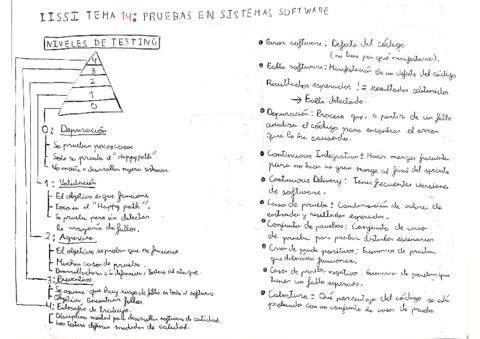 IISSI TEMA 14: PRUEBAS EN SISTEMAS SOFTWARE
NIVELES DE TESTING
4
3
2
1
0
0: Depuración
Se prueban pocos casos.
Solo se prueba el "Happy path"
No enseña a desarrollar mejores sistemas.
1: Validación
El objetivo es que funcione
Foco en el "Happy path".
Se prueba pero sin detectar
la mayoría de fallos.
2: Agresivo
El objetivo es probar que no funciona
Muchos casos de prueba
Desarrolladores a la defensiva, Testers al ataque.
3: Preventivo
Se asume que hay riesgo de fallo en todo el software
Objetivo: Encontrar fallos.
4: Filosofía de trabajo.
Disciplina mental para desarrollar software de calidad.
Los testers definen medidas de calidad.
Error software: Defecto del código
(no tiene por qué manifestarse).
Fallo software: Manifestación de un defecto del código
Resultados esperados != resultados obtenidos
→ Fallo detectado.
Depuración: Proceso que, a partir de un fallo
analiza el código para encontrar el error
que lo ha causado.
Continuous Integration: Hacer merges frecuentes
para no hacer un gran merge al final del sprint
Continuous Delivery: Tener frecuentes versiones
de software.
Caso de prueba: Combinación de valores de
entrada y resultados esperados.
Conjunto de pruebas: Conjunto de casos
de prueba para probar distintos escenarios.
Caso de prueba positivo: Escenarios de pruebas
que deberían funcionar.
Caso de prueba negativo: Escenarios de pruebas que
tienen un fallo esperado.
Cobertura: Qué porcentaje del código se está
probando con un conjunto de casos de prueba